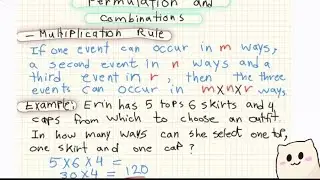 Permutation and
Combinations
- Multiplication Rule
If one event can occur in m ways,
a second event in n ways and a
third event in r, then the three
events can occur in m×n×r ways.
Example: Erin has 5 tops 6 skirts and 4
caps from which to choose an outfit.
In how many ways can she select one top,
one skirt and one cap?
5×6×4 =
30×4 = 120